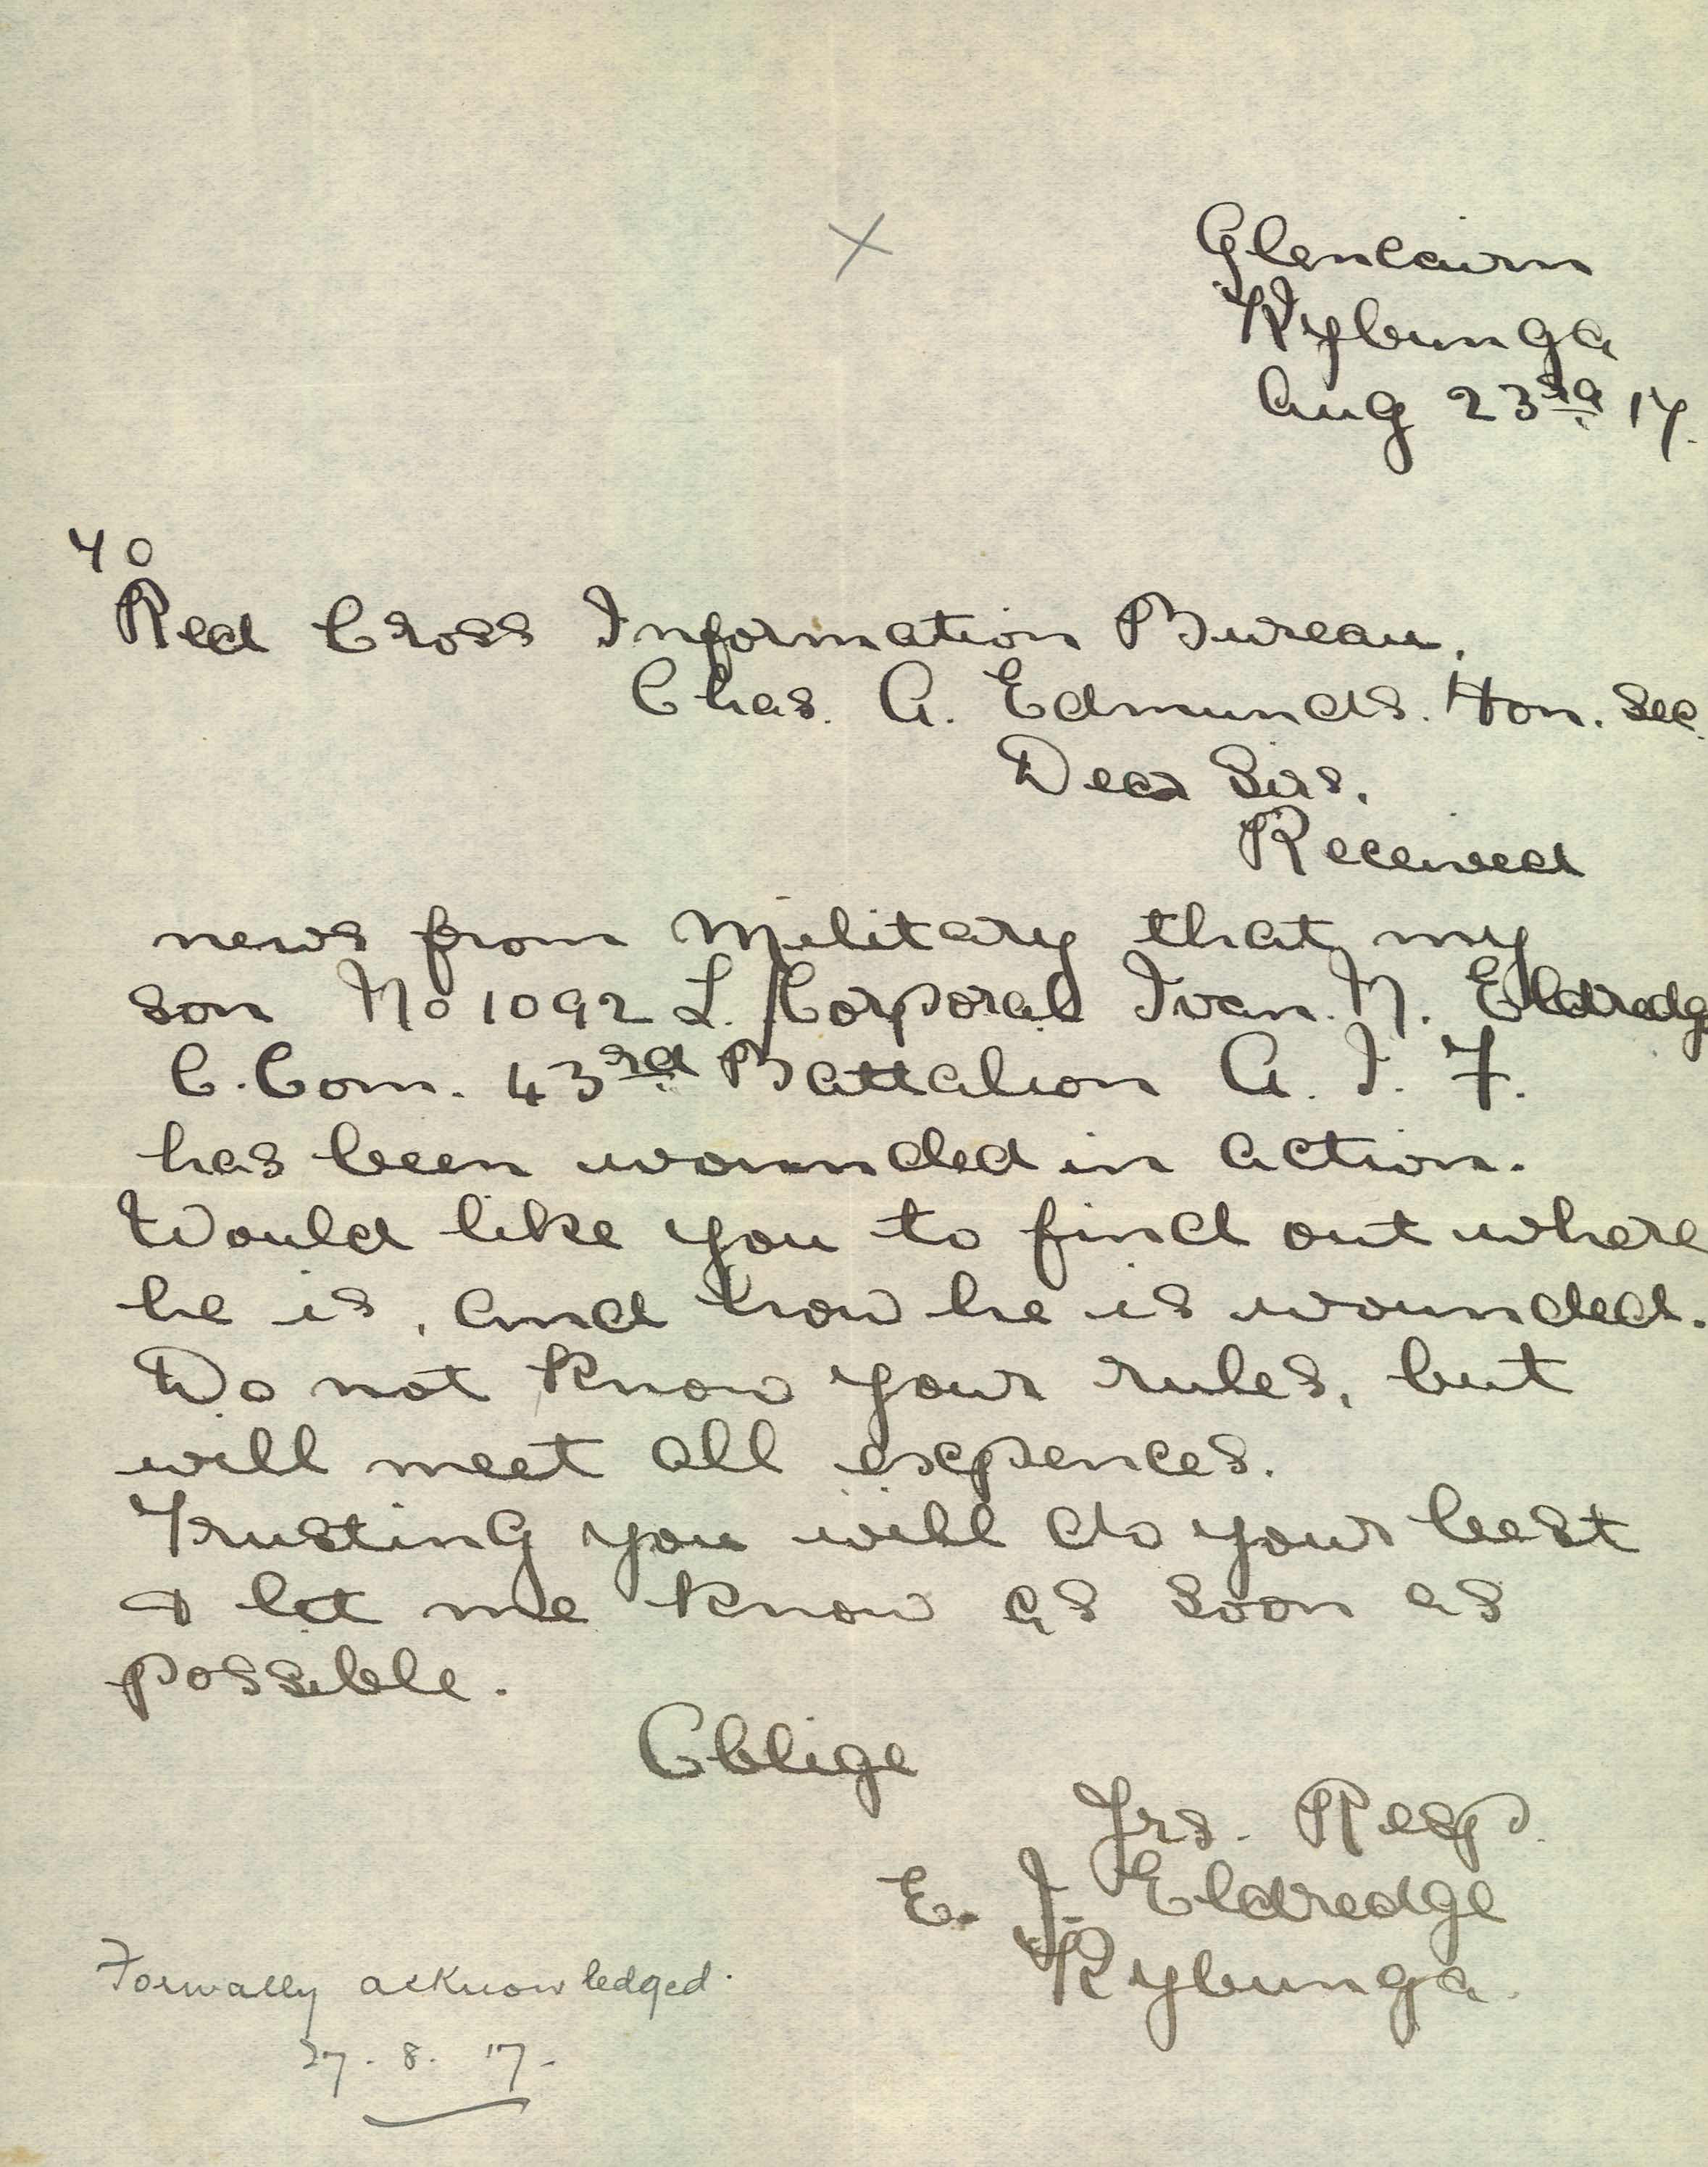 x
Glencairn
Rybunga
Aug 23rd 17.
To
Red Cross Information Bureau.
Chas. A. Edmunds. Hon. Sec.
Dear Sirs.
Received
news from Military that my
son No 1092 L. Corporal Ivan. N. Eldredg
C. Com. 43rd Battalion A. I. F.
has been wounded in action.
Would like you to find out where
he is, and how he is wounded.
Do not know your rules, but
will meet all expences.
Trusting you will do your best
& let me know as soon as
possible.
Oblige
Yrs. Resp.
E. J. Eldredge
Rybunga.
Formally acknowledged.
27. 8. 17.